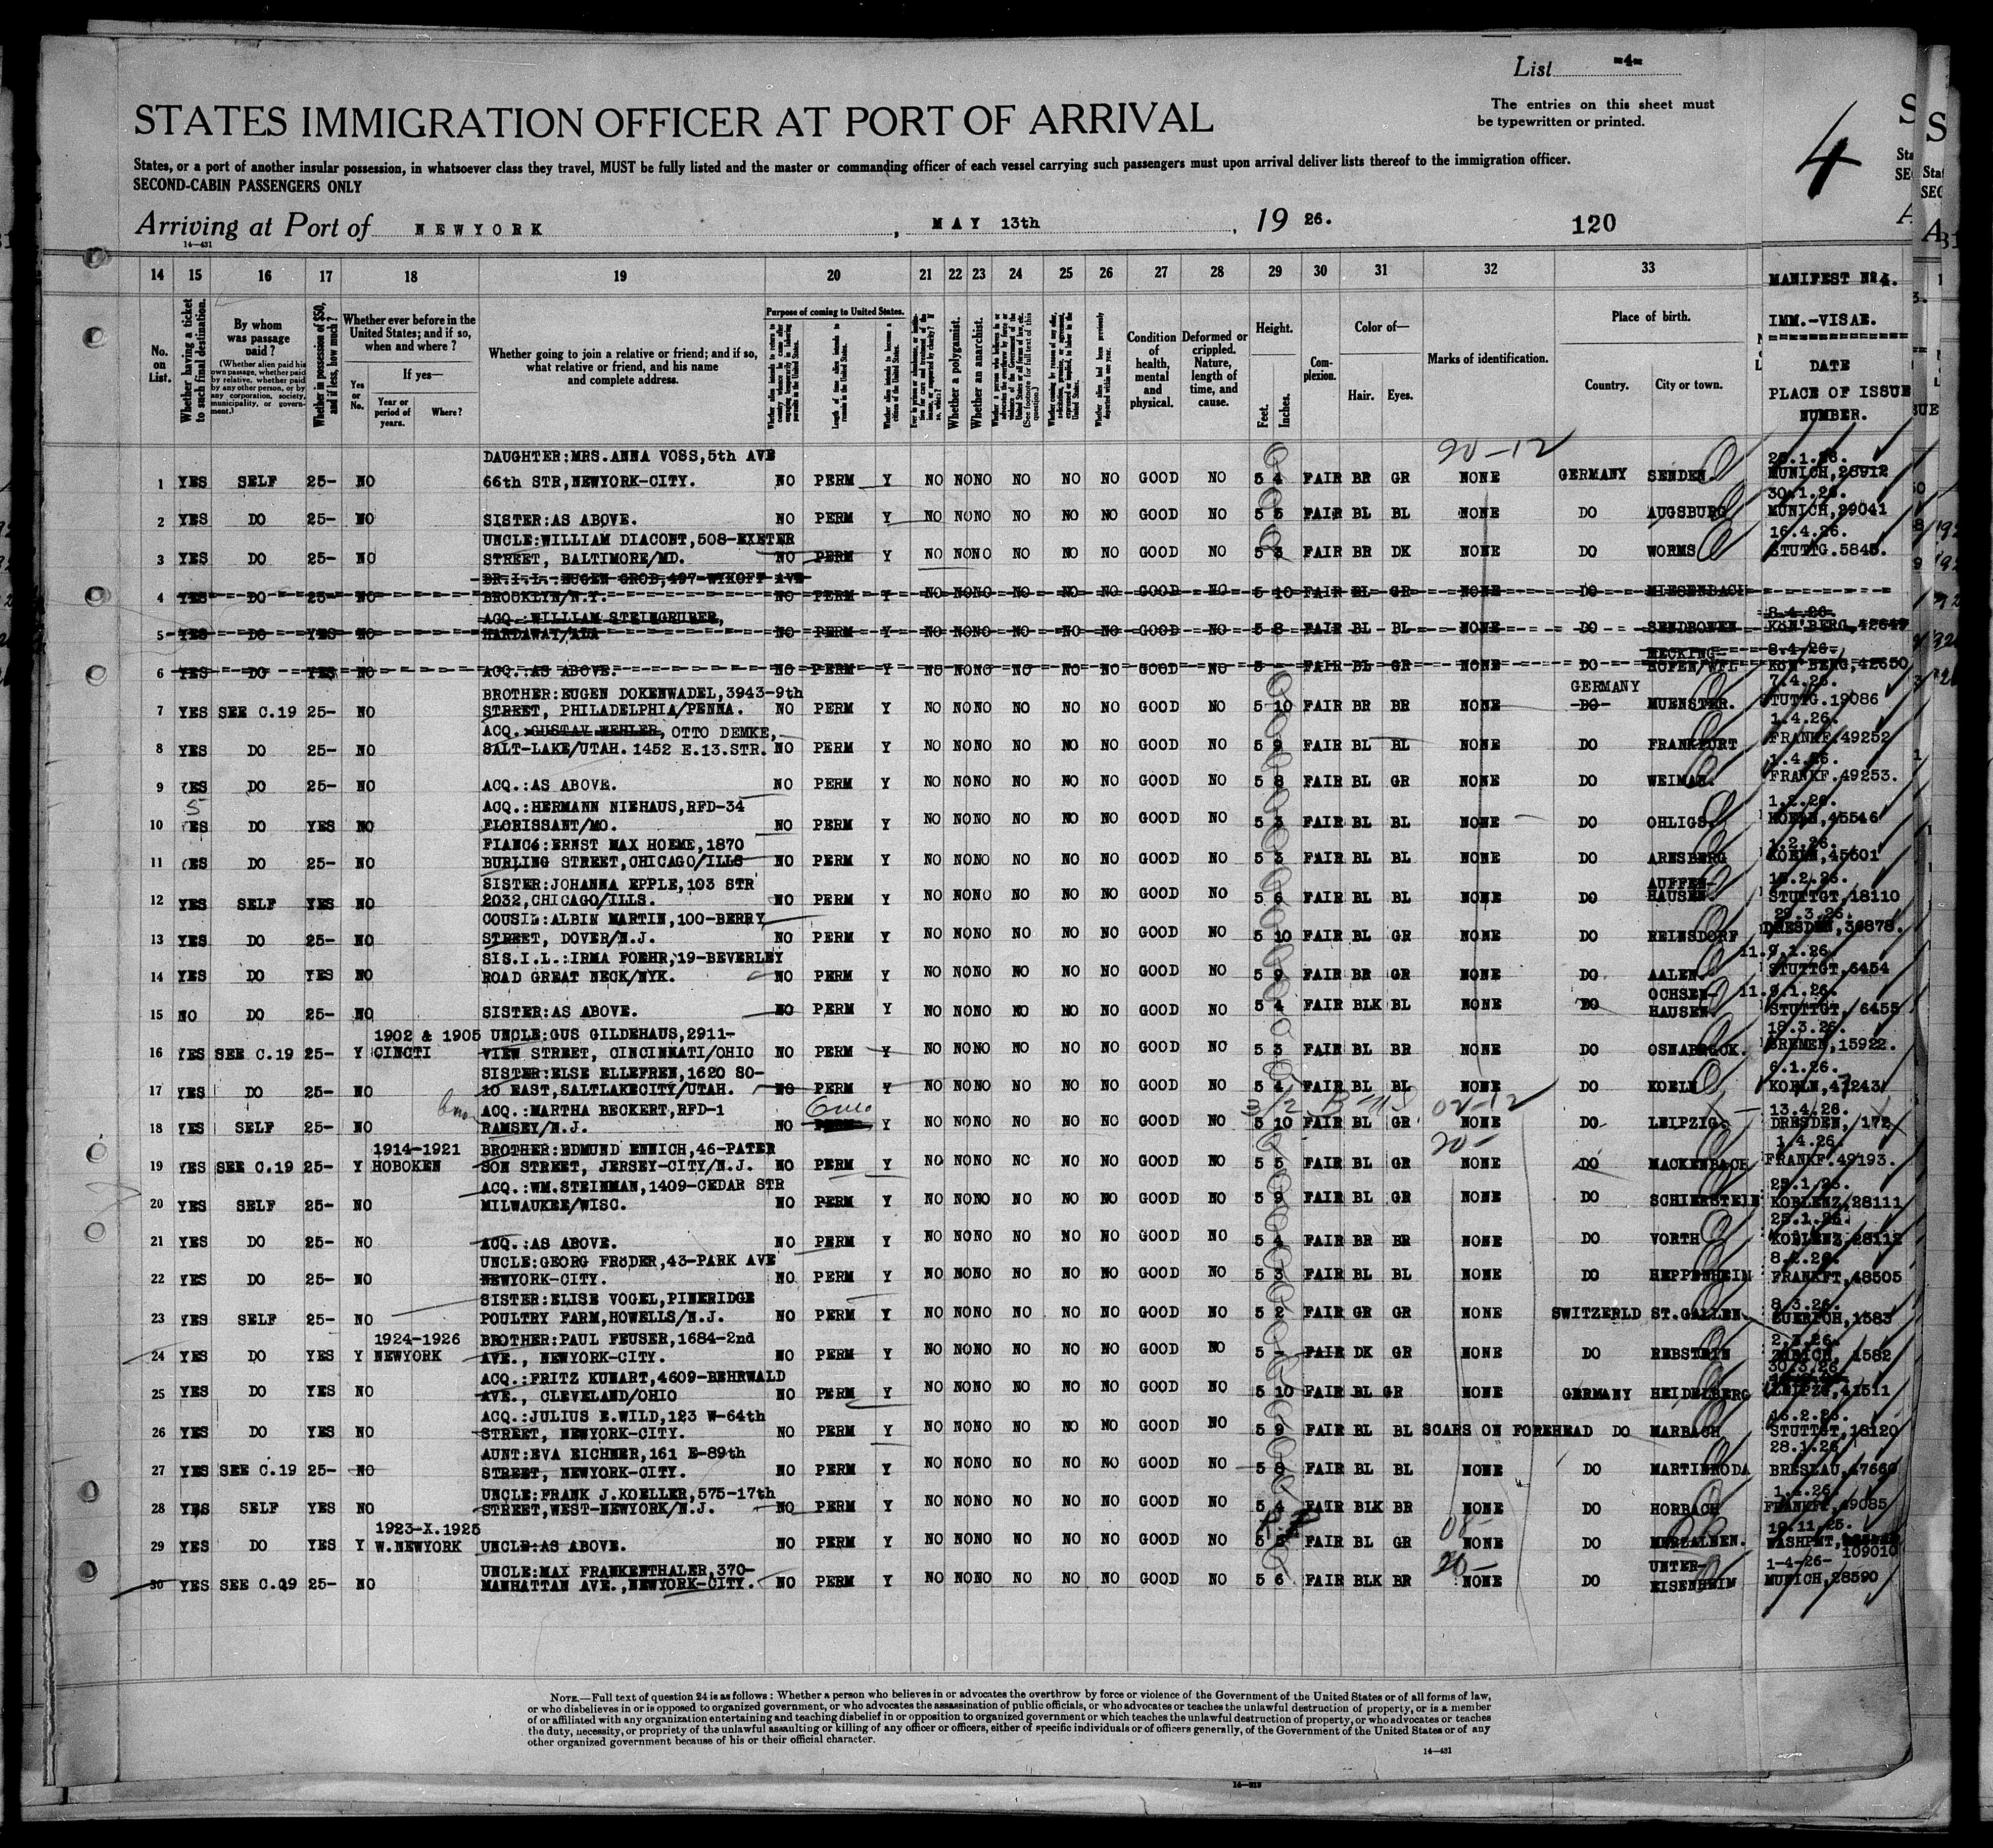 List -4-
The entries on this sheet must
be typewritten or printed.
4
STATES IMMIGRATION OFFICER AT PORT OF ARRIVAL
States, or a port of another insular possession, in whatsoever class they travel, MUST be fully listed and the master or commanding officer of each vessel carrying such passengers must upon arrival deliver lists thereof to the immigration officer.
SECOND-CABIN PASSENGERS ONLY
Arriving at Port of NEWYORK, MAY 13th, 19 26. 120
14—431
14 15 16 17 18 19 20 21 22 23 24 25 26 27 28 29 30 31 32 33
MANIFEST No 4.
IMM.-VISAE.
DATE
PLACE OF ISSUE
NUMBER.
No. on List.
Whether having a ticket to such final destination.
By whom was passage paid?
(Whether alien paid his own passage, whether paid by relative, whether paid by any other person, or by any corporation, society, municipality, or government.)
Whether in possession of $50, and if less, how much?
Whether ever before in the United States; and if so, when and where?
Yes or No.
If yes—
Year or period of years.
Where?
Whether going to join a relative or friend; and if so, what relative or friend, and his name and complete address.
Purpose of coming to United States.
Length of time alien intends to remain in the United States.
Whether alien intends to become a citizen of the United States.
Whether a polygamist.
Whether an anarchist.
Condition of health, mental and physical.
Deformed or crippled. Nature, length of time, and cause.
Height.
Feet. Inches.
Complexion.
Color of—
Hair. Eyes.
Marks of identification.
Place of birth.
Country. City or town.
90-12
DAUGHTER:MRS.ANNA VOSS,5th AVE 25.1.26.
1 YES SELF 25- NO 66th STR,NEWYORK-CITY. NO PERM Y NO NO NO NO NO NO GOOD NO 5 4 FAIR BR GR NONE GERMANY SENDEN. MUNICH,28912
30.1.26.
2 YES DO 25- NO SISTER:AS ABOVE. NO PERM Y NO NO NO NO NO NO GOOD NO 5 5 FAIR BL BL NONE DO AUGSBURG MUNICH,29041
UNCLE:WILLIAM DIACONT,508-EXETER 16.4.26.
3 YES DO 25- NO STREET, BALTIMORE/MD. NO PERM Y NO NO NO NO NO NO GOOD NO 5 3 FAIR BR DK NONE DO WORMS STUTTG.5845.
BR.I.L. EUGEN GROB,497-WYKOFT AVE
4 YES DO 25- NO BROOKLYN/N.Y. NO PERM Y NO NO NO NO NO NO GOOD NO 5 10 FAIR BL GR NONE DO MIESENBACH
ACQ.:WILLIAM STEINGRUBER, 8.4.26.
5 YES DO YES NO HARDAWAY/ALA NO PERM Y NO NO NO NO NO NO GOOD NO 5 8 FAIR BL BL NONE DO SENDROWEN KÖN'BERG,42649
HECKING- 8.4.26.
6 YES DO YES NO ACQ.:AS ABOVE. NO PERM Y NO NO NO NO NO NO GOOD NO 5 - FAIR BL GR NONE DO HOFEN/WFL KÖN'BERG,42650
BROTHER:EUGEN DOKENWADEL,3943-9th GERMANY 7.4.26.
7 YES SEE C.19 25- NO STREET, PHILADELPHIA/PENNA. NO PERM Y NO NO NO NO NO NO GOOD NO 5 10 FAIR BR BR NONE DO MUENSTER. STUTTG.19086
ACQ.:GUSTAV WEHLER, OTTO DEMKE, 1.4.26.
8 YES DO 25- NO SALT-LAKE/UTAH. 1452 E.13.STR. NO PERM Y NO NO NO NO NO NO GOOD NO 5 9 FAIR BL BL NONE DO FRANKFURT FRANKF.49252
1.4.26.
9 YES DO 25- NO ACQ.:AS ABOVE. NO PERM Y NO NO NO NO NO NO GOOD NO 5 8 FAIR BL GR NONE DO WEIMAR. FRANKF.49253.
5 ACQ.:HERMANN NIEHAUS,RFD-34 1.2.26.
10 YES DO YES NO FLORISSANT/MO. NO PERM Y NO NO NO NO NO NO GOOD NO 5 3 FAIR BL BL NONE DO OHLIGS. KOELN,45546
FIANCé:ERNST MAX HOEME,1870 1.2.26.
11 YES DO 25- NO BURLING STREET,CHICAGO/ILLS NO PERM Y NO NO NO NO NO NO GOOD NO 5 3 FAIR BL BL NONE DO ARNSBERG KOELN,45501
SISTER:JOHANNA EPPLE,103 STR AUFFEN- 15.2.26.
12 YES SELF YES NO 2032,CHICAGO/ILLS. NO PERM Y NO NO NO NO NO NO GOOD NO 5 6 FAIR BL BL NONE DO HAUSEN. STUTTGT,18110
COUSIL:ALBIN MARTIN,100-BERRY 29.3.26.
13 YES DO 25- NO STREET, DOVER/N.J. NO PERM Y NO NO NO NO NO NO GOOD NO 5 10 FAIR BL GR NONE DO REINSDORF DRESDEN,36878.
SIS.I.L.:IRMA FOEHR,19-BEVERLEY 11.9.1.26.
14 YES DO YES NO ROAD GREAT NECK/NYK. NO PERM Y NO NO NO NO NO NO GOOD NO 5 9 FAIR BR GR NONE DO AALEN STUTTGT,6454
OCHSEN- 11.9.1.26.
15 NO DO 25- NO SISTER:AS ABOVE. NO PERM Y NO NO NO NO NO NO GOOD NO 5 4 FAIR BLK BL NONE DO HAUSEN STUTTGT, 6455
1902 & 1905 UNCLE:GUS GILDEHAUS,2911- 18.3.26.
16 YES SEE C.19 25- Y CINCTI VIEW STREET, CINCINNATI/OHIO NO PERM Y NO NO NO NO NO NO GOOD NO 5 3 FAIR BL BR NONE DO OSNABRÜCK. BREMEN,15922.
SISTER:ELSE ELLEFREN,1620 SO- 6.1.26.
17 YES DO 25- NO 10 EAST,SALTLAKECITY/UTAH. NO PERM Y NO NO NO NO NO NO GOOD NO 5 4 FAIR BL BL NONE DO KOELN KOELN,47243
6mo ACQ.:MARTHA BECKERT,RFD-1 6mo 02-12 13.4.26.
18 YES SELF 25- NO RAMSEY/N.J. NO PERM Y NO NO NO NO NO NO GOOD NO 5 10 FAIR BL GR NONE DO LEIPZIG. DRESDEN, 172
1914-1921 BROTHER:EDMUND ENNICH,46-PATER 20- 1.4.26.
19 YES SEE C.19 25- Y HOBOKEN SON STREET, JERSEY-CITY/N.J. NO PERM Y NO NO NO NO NO NO GOOD NO 5 5 FAIR BL GR NONE DO MACKENBACH FRANKF.49193.
ACQ.:WM.STEINMAN,1409-CEDAR STR 25.1.26.
20 YES SELF 25- NO MILWAUKEE/WISC. NO PERM Y NO NO NO NO NO NO GOOD NO 5 9 FAIR BL GR NONE DO SCHIERSTEIN KOBLENZ,28111
25.1.26.
21 YES DO 25- NO ACQ.:AS ABOVE. NO PERM Y NO NO NO NO NO NO GOOD NO 5 4 FAIR BR BR NONE DO VORTH KOBLENZ,28112
UNCLE:GEORG FRöDER,43-PARK AVE 8.2.26.
22 YES DO 25- NO NEWYORK-CITY. NO PERM Y NO NO NO NO NO NO GOOD NO 5 3 FAIR BL BL NONE DO HEPPENHEIM FRANKFT,48505
SISTER:ELISE VOGEL,PINERIDGE 8.3.26.
23 YES SELF 25- NO POULTRY FARM,HOWELLS/N.J. NO PERM Y NO NO NO NO NO NO GOOD NO 5 2 FAIR GR GR NONE SWITZERLD ST.GALLEN ZUERICH,1583
1924-1926 BROTHER:PAUL FEUSER,1684-2nd 2.3.26.
24 YES DO YES Y NEWYORK AVE., NEWYORK-CITY. NO PERM Y NO NO NO NO NO NO GOOD NO 5 - FAIR DK GR NONE DO REBSTEIN ZÜRICH, 1582
ACQ.:FRITZ KUNART,4609-BEHRWALD 30.3.26
25 YES DO YES NO AVE., CLEVELAND/OHIO NO PERM Y NO NO NO NO NO NO GOOD NO 5 10 FAIR BL GR NONE GERMANY HEIDELBERG LEIPZG,41511
ACQ.:JULIUS E.WILD,123 W-64th 16.2.26.
26 YES DO YES NO STREET, NEWYORK-CITY. NO PERM Y NO NO NO NO NO NO GOOD NO 5 9 FAIR BL BL SCARS ON FOREHEAD DO MARBACH STUTTGT,18120
AUNT:EVA EICHNER,161 E-89th 28.1.26
27 YES SEE C.19 25- NO STREET, NEWYORK-CITY. NO PERM Y NO NO NO NO NO NO GOOD NO 5 8 FAIR BL BL NONE DO MARTINRODA BRESLAU,47660
UNCLE:FRANK J.KOELLER,575-17th 1.4.26.
28 YES SELF YES NO STREET,WEST-NEWYORK/N.J. NO PERM Y NO NO NO NO NO NO GOOD NO 5 4 FAIR BLK BR NONE DO HORBACH FRANKFT,49085
1923-X.1925 08- 19.11.25.
29 YES DO YES Y W.NEWYORK UNCLE:AS ABOVE. NO PERM Y NO NO NO NO NO NO GOOD NO 5 5 FAIR BL GR NONE DO MERZALBEN. WASHPMT, 109010
UNCLE:MAX FRANKENTHALER,370- 20- UNTER- 1-4-26-
30 YES SEE C.09 25- NO MANHATTAN AVE.,NEWYORK-CITY. NO PERM Y NO NO NO NO NO NO GOOD NO 5 6 FAIR BLK BR NONE DO EISENHEIM MUNICH,28590
NOTE.—Full text of question 24 is as follows: Whether a person who believes in or advocates the overthrow by force or violence of the Government of the United States or of all forms of law,
or who disbelieves in or is opposed to organized government, or who advocates the assassination of public officials, or who advocates or teaches the unlawful destruction of property, or is a member
of or affiliated with any organization entertaining and teaching disbelief in or opposition to organized government or which teaches the unlawful destruction of property, or who advocates or teaches
the duty, necessity, or propriety of the unlawful assaulting or killing of any officer or officers, either of specific individuals or of officers generally, of the Government of the United States or of any
other organized government because of his or their official character.
14—431